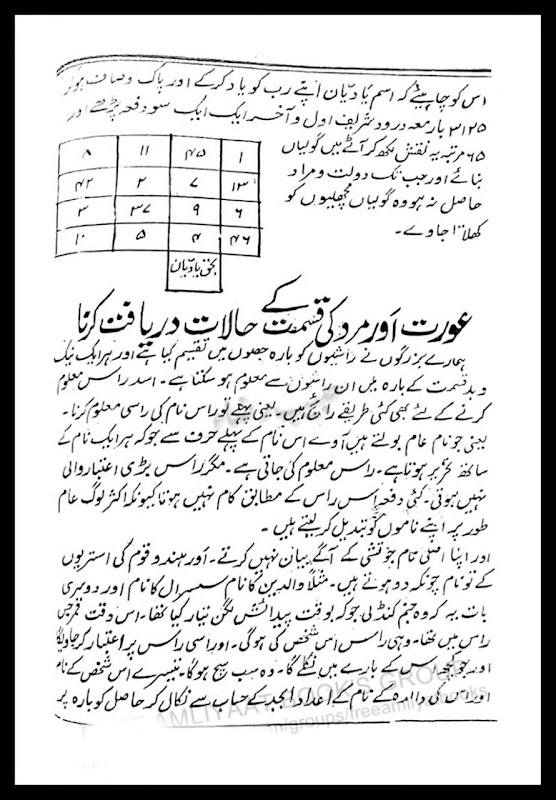 اس کو چاہیئے کہ اسم یا دیّان اپنے رب کو یاد کرکے اور پاک وصاف ہوکر
۳۱۲۵ بار معہ درود شریف اول و آخر ایک ایک سو دفعہ پڑھے اور
۶۵ مرتبہ یہ نقش لکھ کر آٹے میں گولیاں
بنائے اور جب تک دولت و مراد
حاصل نہ ہو وہ گولیاں مچھلیوں کو
کھلاتا جاوے۔
۸ ۱۱ ۴۵ ۱
۴۲ ۲ ۷ ۱۳
۳ ۳۷ ۹ ۶
۱۰ ۵ ۴ ۴۶
بحق یا دیّان
عورت اور مرد کی قسمت کے حالات دریافت کرنا
ہمارے بزرگوں نے راشیوں کو بارہ حصوں میں تقسیم کیا ہے اور ہر ایک نیک
و بد قسمت کے بارہ میں ان راشیوں سے معلوم ہو سکتا ہے۔ اسد راس معلوم
کرنے کے لئے بھی کئی طریقے رائج ہیں۔ یعنی پہلے تو راس نام کی راسی معلوم کرنا۔
یعنی جو نام عام بولنے میں آوے اس نام کے پہلے حرف سے جو کہ ہر ایک نام کے
ساتھ تحریر ہوتا ہے۔ راس معلوم کی جاتی ہے۔ مگر راس بڑی اعتبار والی
نہیں ہوتی۔ کئی دفعہ اس راس کے مطابق کام نہیں ہوتا کیونکہ اکثر لوگ عام
طور پر اپنے ناموں کو تبدیل کر لیتے ہیں۔
اور اپنا اصلی نام جوتشی کے آگے بیان نہیں کرتے۔ اور ہندو قوم کی استریوں
کے تو نام چونکہ دو ہوتے ہیں۔ مثلاً والدین کا نام سسرال کا نام اور دوسری
بات یہ کہ وہ جنم کنڈلی جو کہ بوقت پیدائش لگن تیار کیا گیا تھا۔ اس وقت قمر جس
راس میں تھا۔ وہی راس اس شخص کی ہوگی۔ اور اسی راس پر اعتبار کر جاویگا
اور جو کچھ اس کے بارے میں نکلے گا۔ وہ سب سچ ہوگا۔ تیسرے اس شخص کے نام
اور اس کی والدہ کے نام کے اعداد ابجد کے حساب سے نکال کر حاصل کو بارہ پر
AMLIYAAT BOOKS GROUP
.com/groups/freeamliyatbooks